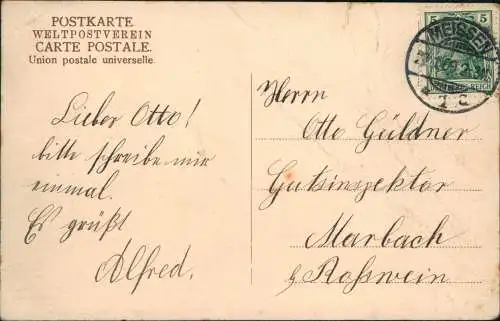 POSTKARTE
WELTPOSTVEREIN
CARTE POSTALE.
Union postale universelle.
Lieber Otto!
bitte schreibe mir
einmal.
Es grüßt
Alfred.
5 5
MEISSEN
1 c
REICH
Herrn
Otto Güldner
Gutsinspektor
Marbach
b/ Roßwein